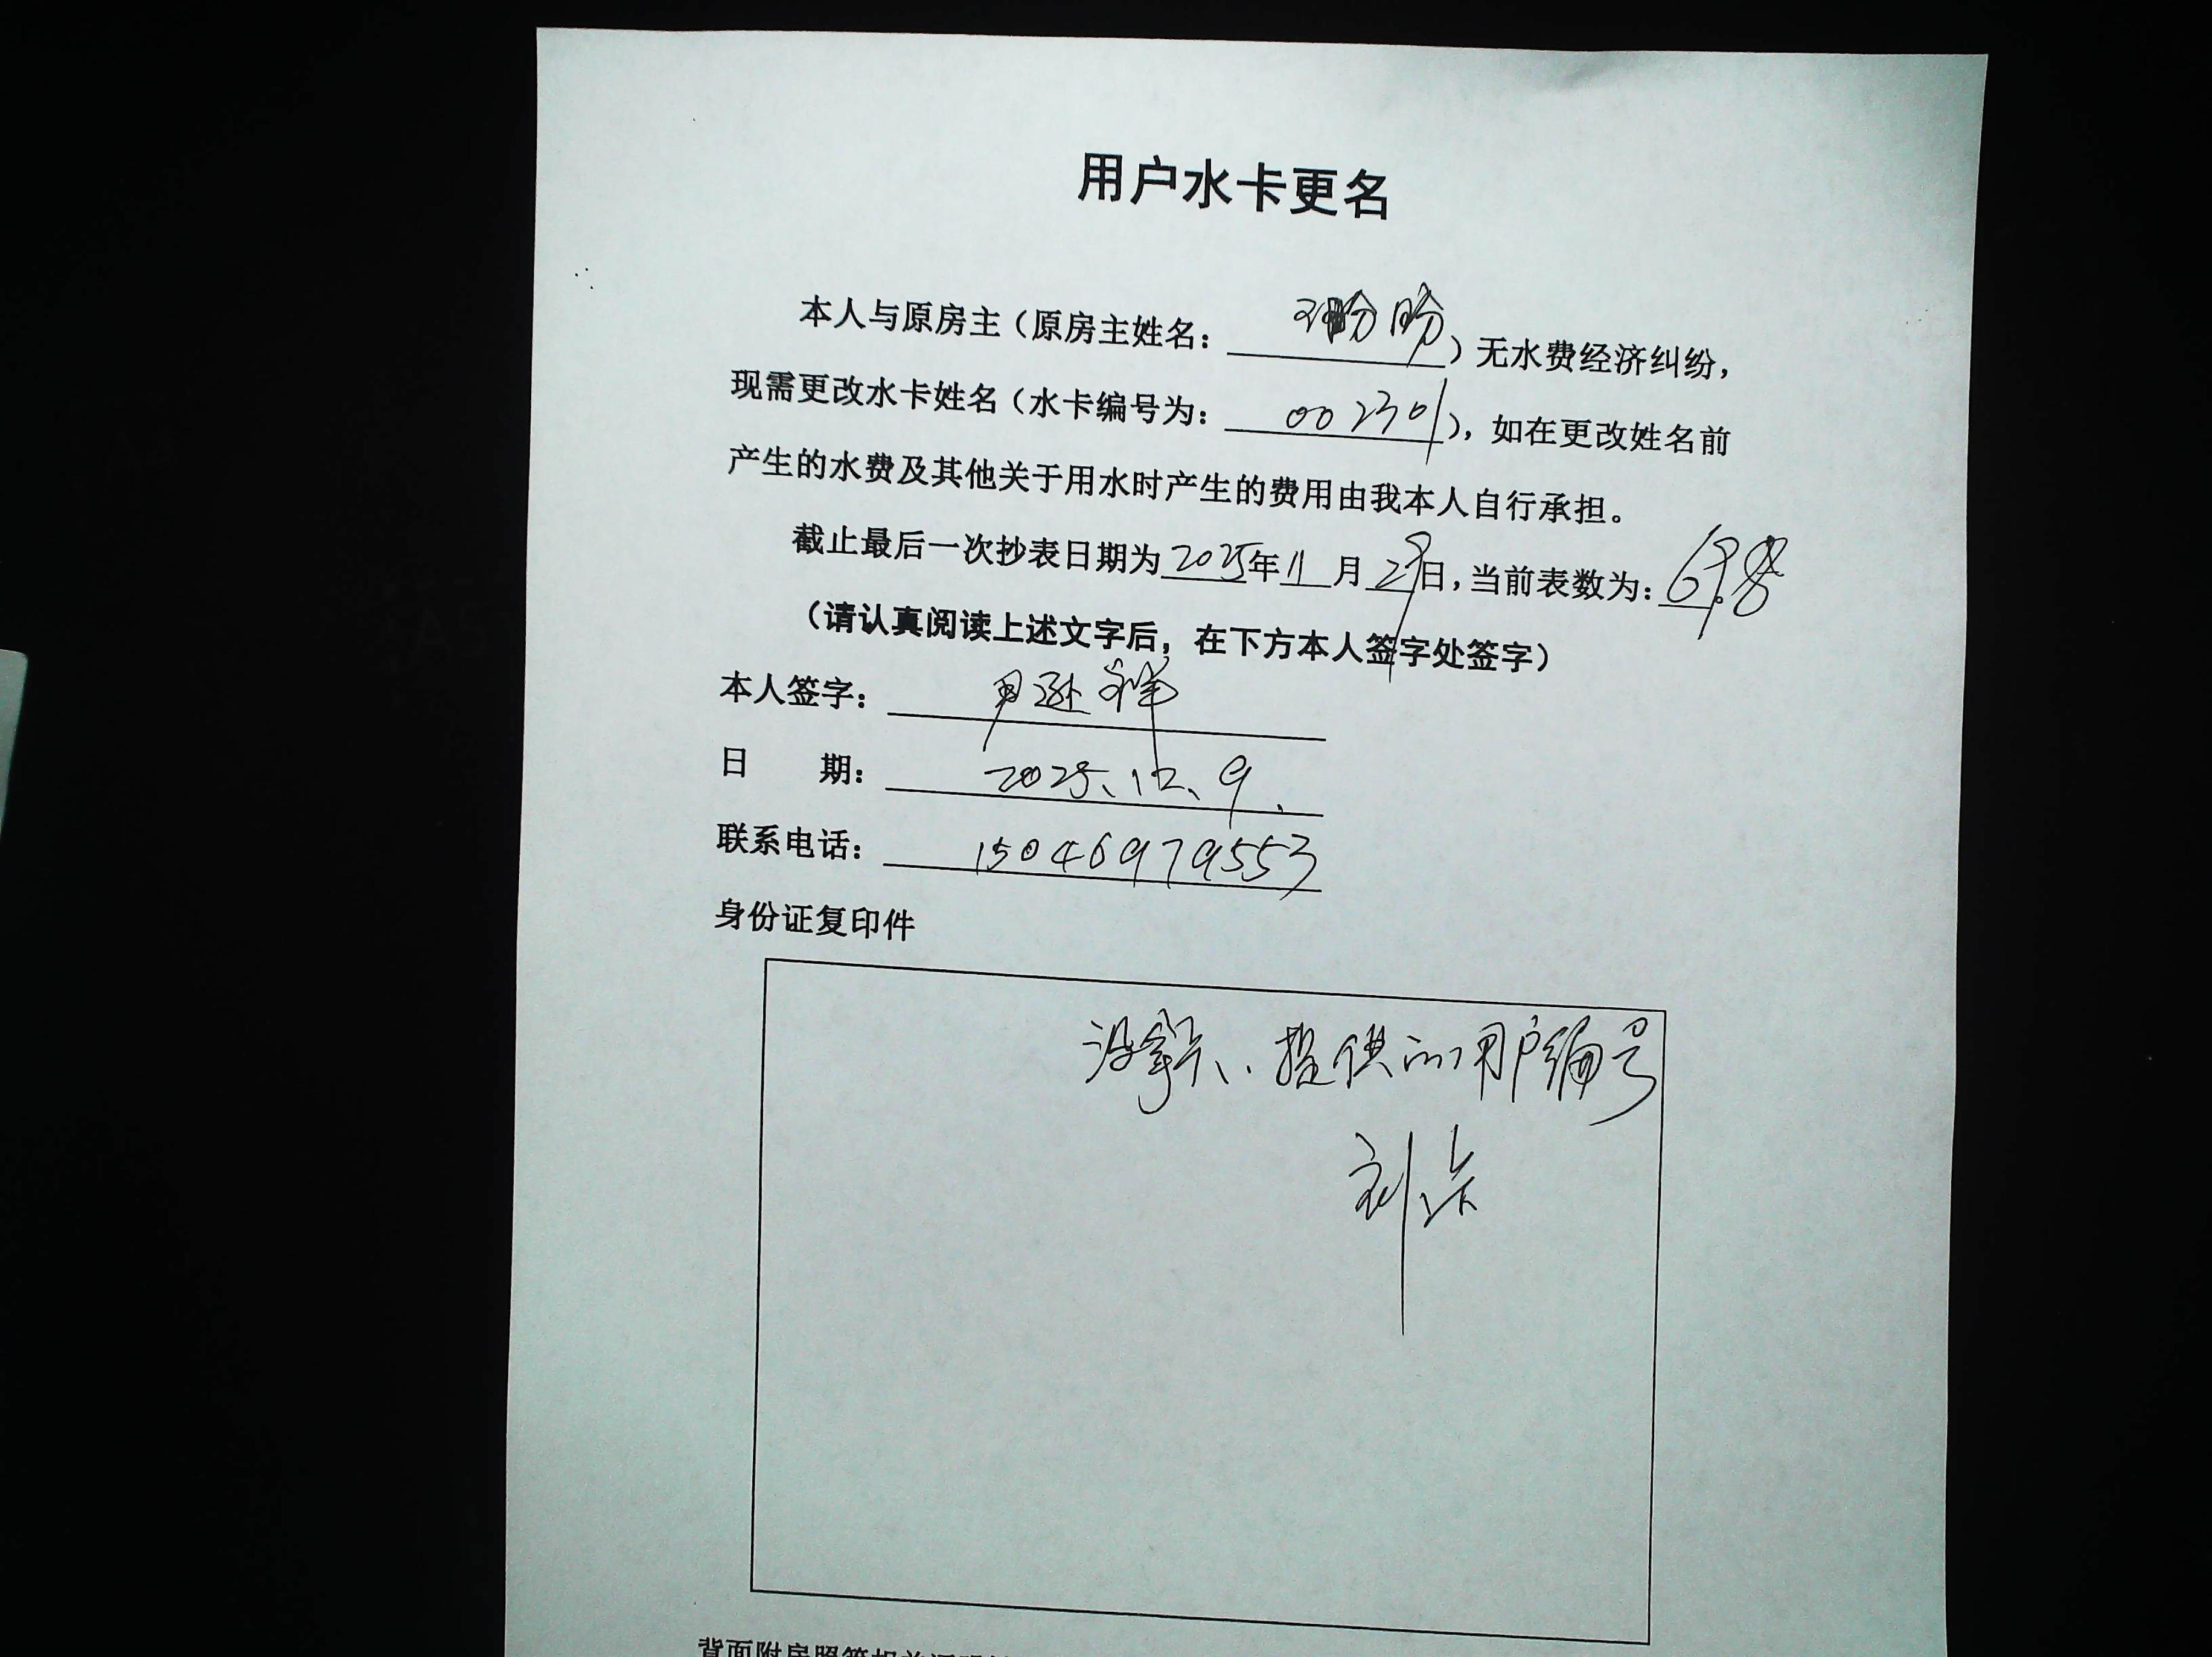 用户水卡更名
本人与原房主（原房主姓名：盼盼）无水费经济纠纷，
现需更改水卡姓名（水卡编号为：002301），如在更改姓名前
产生的水费及其他关于用水时产生的费用由我本人自行承担。
截止最后一次抄表日期为2025年11月29日，当前表数为：698
（请认真阅读上述文字后，在下方本人签字处签字）
本人签字：祥
日 期：2025、12、9、
联系电话：15046979553
身份证复印件
没拿卡、提供的用户编号
刘
背面附房照等相关证明